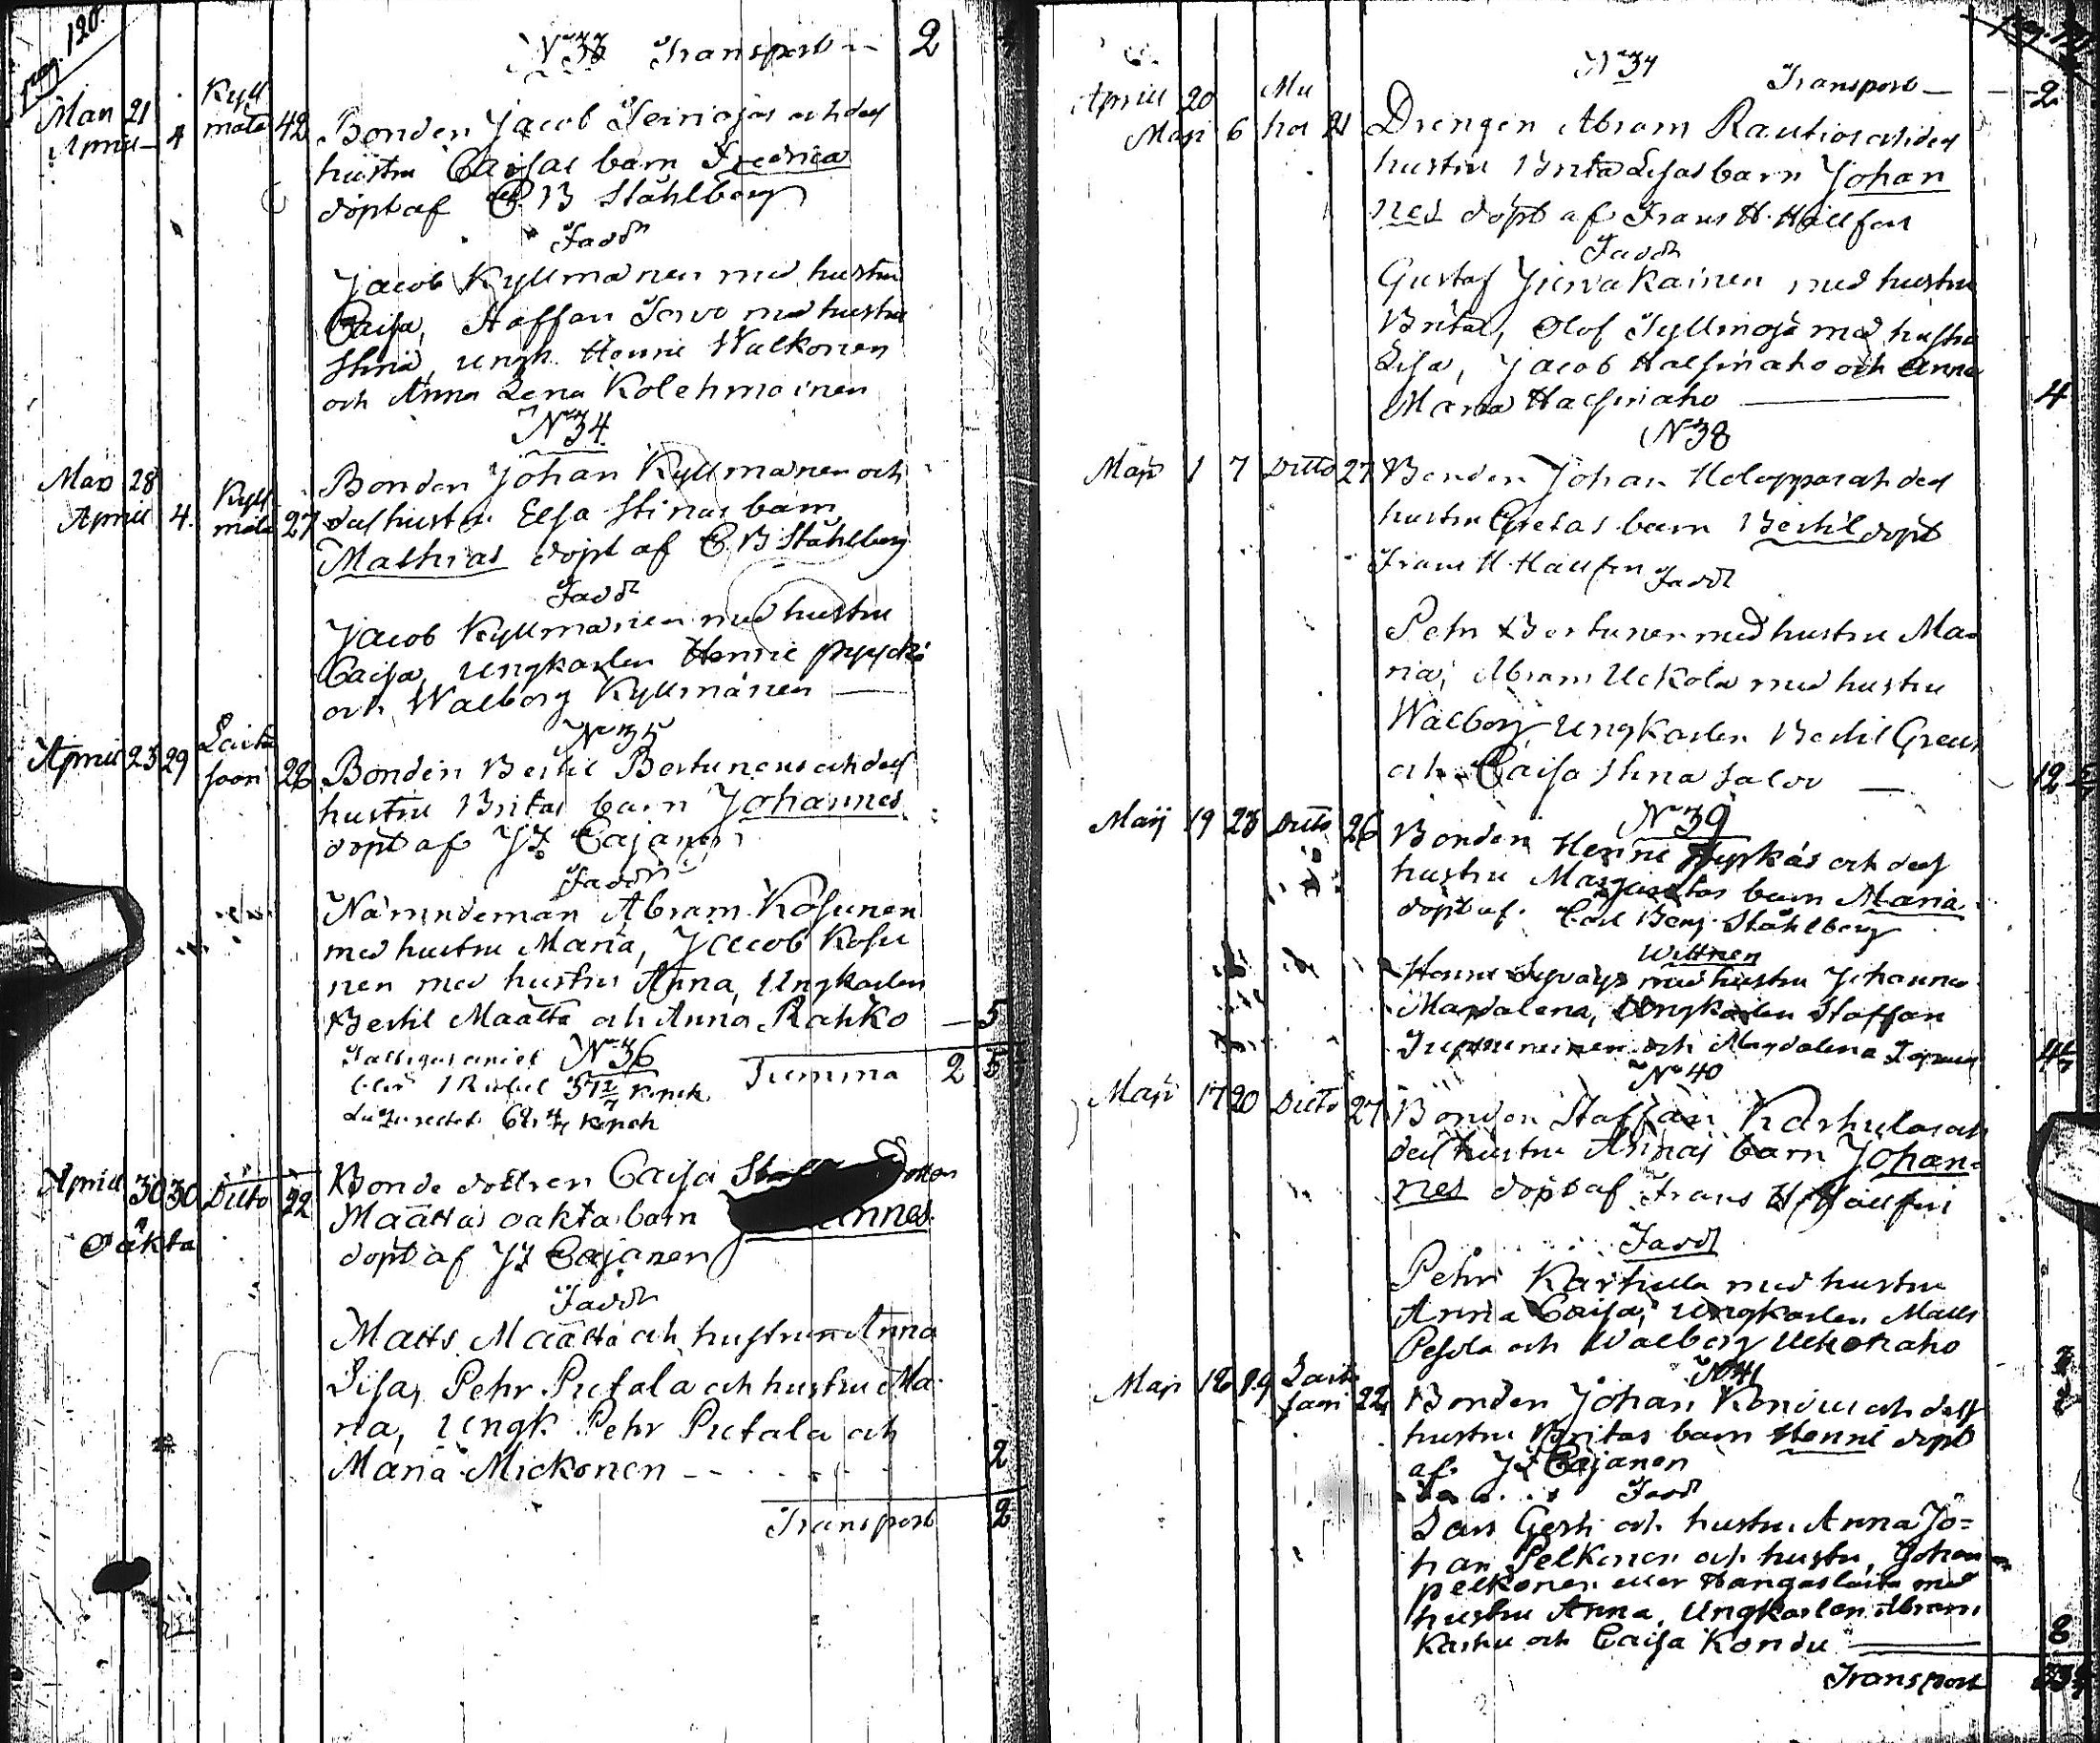 pag. 120.
N 33 Transport -- 2
Mars 21 Kyll
April 4 mälä 42 Bonden Jacob Seinojas och dess
hustru Caisas barn Fredrica
döpt af C B Ståhlberg
Fadd
Jacob Kyllmänen med hustru
Caisa, Staffan Servo med hustru
Stina, ungk. Henric Walkonen
och Anna Lena Kolehmainen
N 34
Mars 28 Bonden Johan Kyllmänen och
April 4. Kyll mälä 27 dess hustru Elsa Stinas barn
Mathias döpt af C B Ståhlberg
Fadd
Jacob Kyllmänen med hustru
Caisa, Ungkarlen Henric pyycki
och Walborg Kyllmänen
N 35
April 23 29 Laita saari 28 Bonden Bertil Bertunens och dess
hustru Britas barn Johannes
döpt af J F Cajanen
Fadd
Nämndeman Abram Kosunen
med hustru Maria, Jacob Kosu
nen med hustru Anna, Ungkarlen
Bertil Määttä och Anna Rahko — 5
N 36
1 Rubel 51 2/7 kopek Summa 2 5
68 4/7 kopek
April 30 30 Ditto 22 Bonde dottren Caisa
Oäkta Määttäs oäkta barn
döpt af J F Cajanen
Fadd
Matts Määttä och hustrun Anna
Lisa, Pehr Pietala och hustru Ma-
ria, Ungk Pehr Pietala och
Maria Mickonen -- 2
Transport 2
N 37
Transport — 2
April 20 Mu
Maji 6 hos 21 Drengen Abram Rautios och dess
hustru Brita Lisas barn Johan
nes döpt af Frans H. Hällfors
Fadd
Gustaf Jurvakainen med hustru
Brita, Olof Kyllinojä med hustru
Lisa, Jacob Halsinaho och Anna
Maria Halsinaho — 4
N 38
Maji 1 7 Ditto 27 Bonden Johan Holappas och dess
hustru Gretas barn Bertil döpt
Frans H. Hällfors Fadd
Pehr Bertunen med hustru Ma-
ria, Abram Uckola med hustru
Walborg Ungkarlen Bertil Greus
och Caisa Stina Salov — 12
N 39
Maij 19 23 Ditto 26 Bonden Henric Pyykäs och dess
hustru Margaretas barn Maria
döpt af Carl Benj. Ståhlberg
Wittnen
Henric med hustru Johanna
Magdalena, Ungkarlen Staffan
och Magdalena
N 40
Maji 17 20 Ditto 27 Bonden Staffan Karhulas och
dess hustru Annas barn Johan-
nes döpt af Frans H. Hällfors
Fadd
Pehr Karhula med hustru
Anna Caisa, Ungkarlen Matts
Pesola och Walborg Uckonaho
N 41
Maji 18 19 Laita saari 22 Bonden Johan Kondus och dess
hustru Britas barn Henric döpt
af J F Cajanen
Fadd
Lars Gerti och hustru Anna Jo=
han Pelkonen och hustru, Johan
pelkonen eller Hangaslaita med
hustru Anna, Ungkarlen Abram
Karhu och Caisa Kondu — 8
Transport